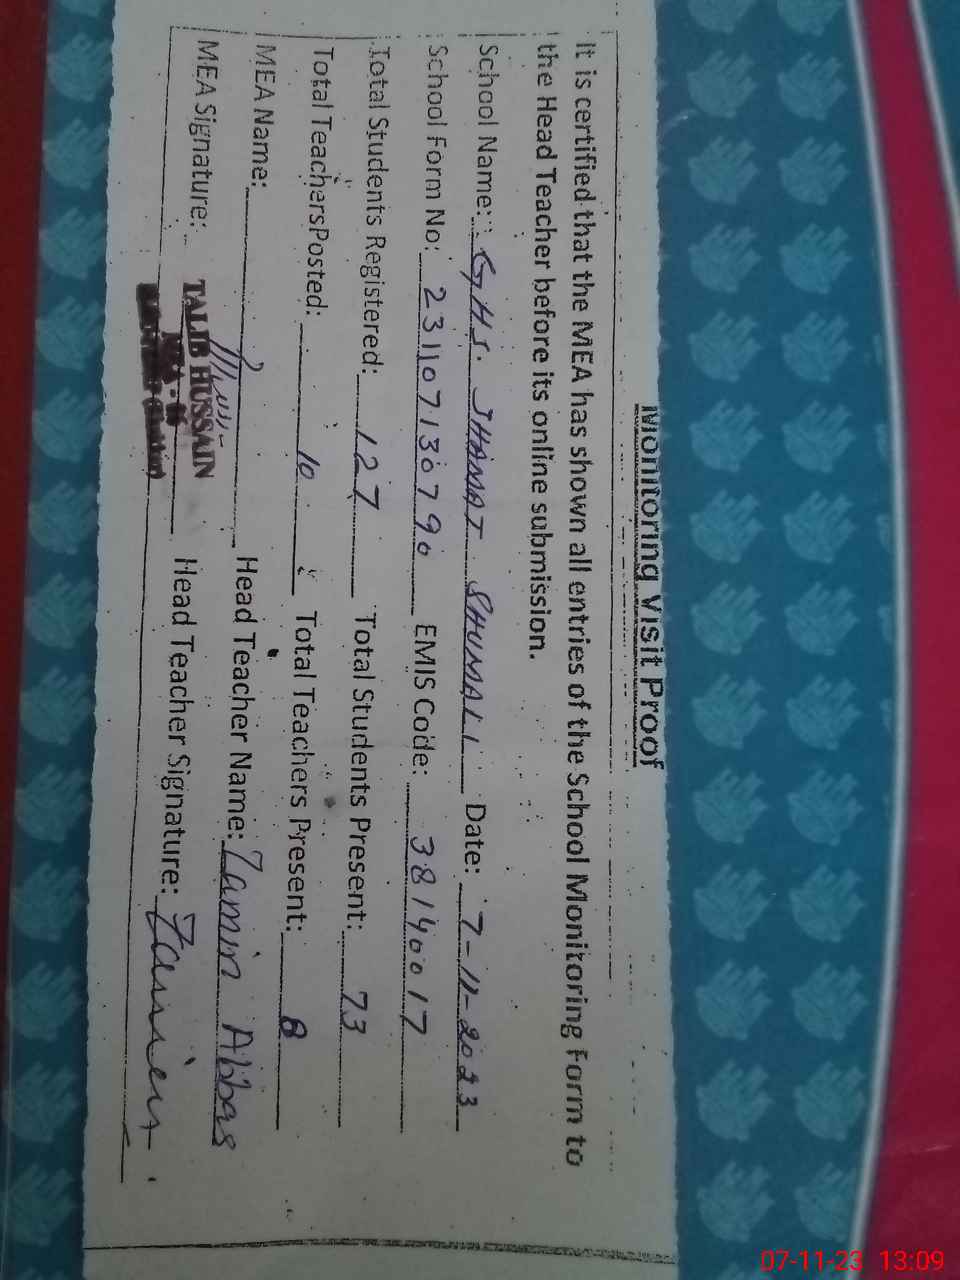 Monitoring Visit Proof
It is certified that the MEA has shown all entries of the School Monitoring Form to
the Head Teacher before its online submission.
School Name: GHS. JHAMAT SHUMALI Date: 7-11-2023
School Form No: 23110713079０ EMIS Code: 38140017
Total Students Registered: 127 Total Students Present: 73
Total TeachersPosted: 10 Total Teachers Present: 8
MEA Name: Head Teacher Name: Zamin Abbas
MEA Signature: TALIB HUSSAIN Head Teacher Signature:
07-11-23 13:09